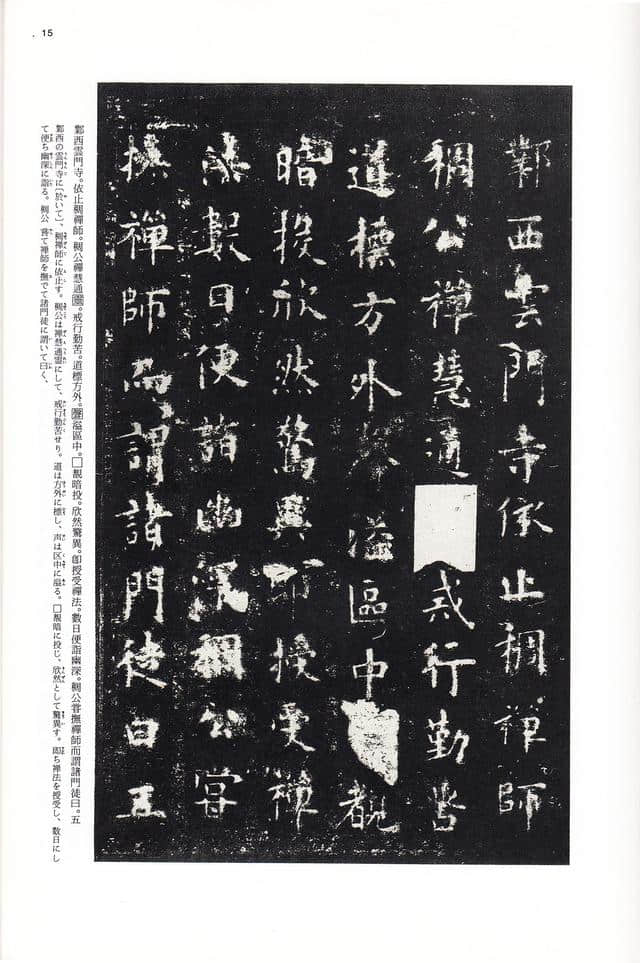 15
鄴西雲門寺依止稠禪師
稠公禪慧通戒行勤苦
道標方外聲溢區中覩
暗投欣然驚異即授受禪
法數日便詣幽深稠公甞
撫禪師而謂諸門徒曰五
鄴西雲門寺。依止稠禪師。稠公禪慧通靈。戒行勤苦。道標方外。聲溢區中。□覩暗投。欣然驚異。卽授受禪法。數日便詣幽深。稠公甞撫禪師而謂諸門徒曰。五
鄴西の雲門寺に〔於いて〕、稠禪師に依止す。稠公は禅慧通霊にして、戒行勤苦せり。道は方外に標し、声は区中に溢る。□覩暗に投じ、欣然として驚異す。即ち禅法を授受し、数日にし
て便ち幽深に詣る。稠公 甞て禅師を撫でて諸門徒に謂いて曰く、